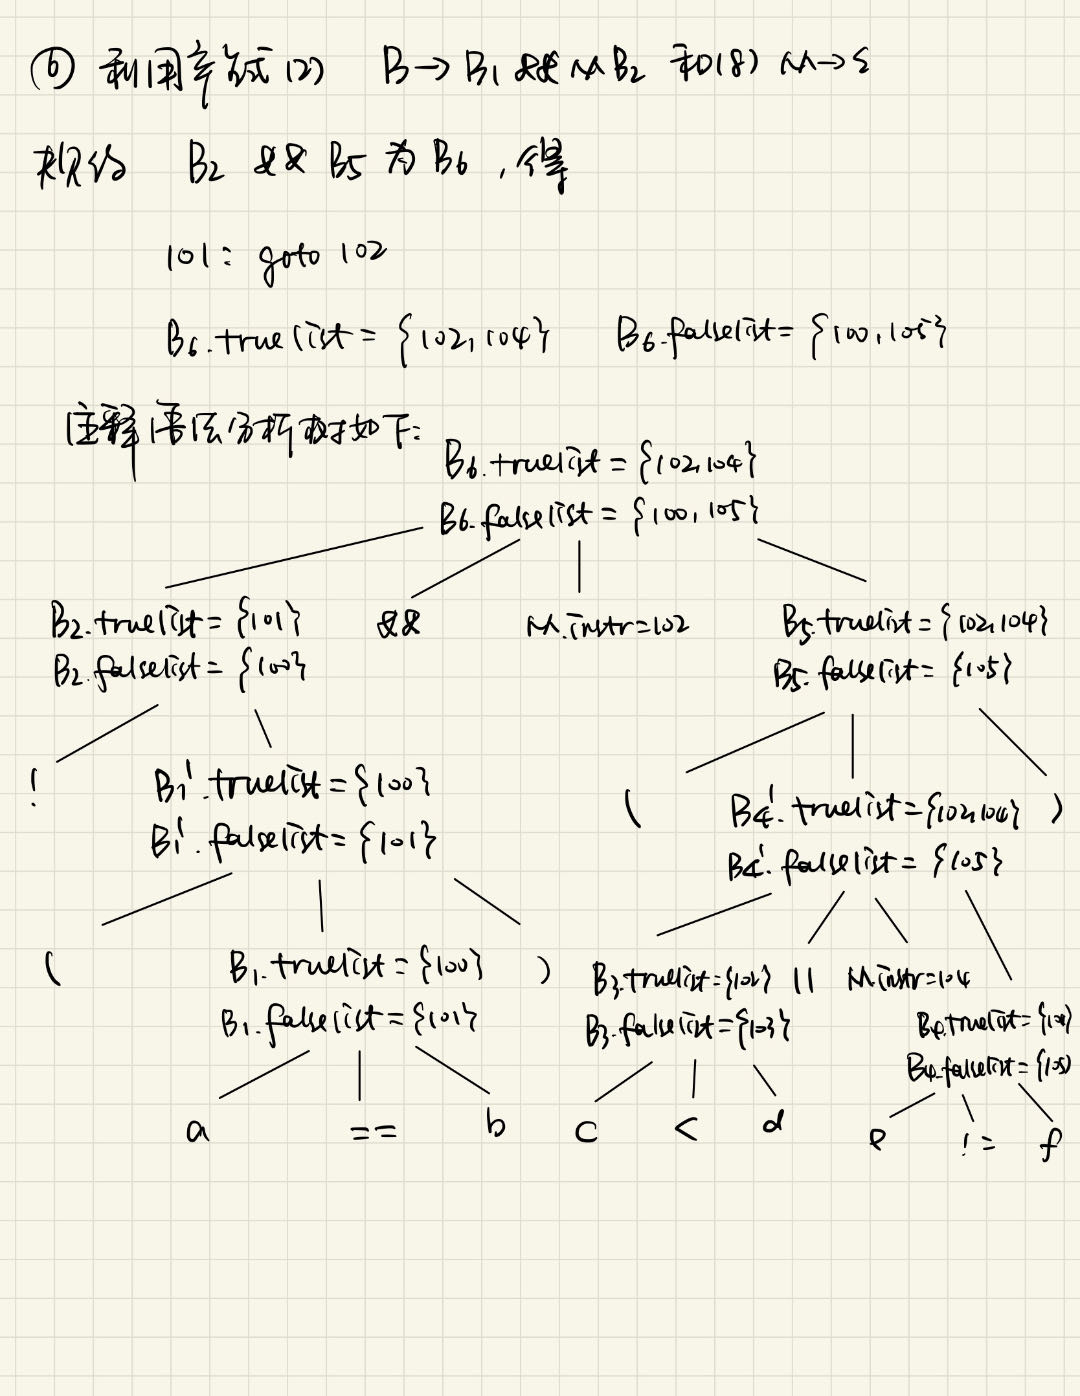 ⑥ 利用产生式(2) B→B₁ && M B₂ 和(8) M→ε
规约 B₂ && B₅ 为 B₆，得
101: goto 102
B₆.truelist = {102, 104} B₆.falselist = {100, 105}
注释语法分析树如下:
B₆.truelist = {102, 104}
B₆.falselist = {100, 105}
B₂.truelist = {101} && M.instr=102 B₅.truelist = {102, 104}
B₂.falselist = {100} B₅.falselist = {105}
! B₁'.truelist = {100} ( B₄'.truelist={102, 104} )
B₁'.falselist = {101} B₄'.falselist = {105}
( B₁.truelist = {100} ) B₃.truelist={102} || M.instr=104
B₁.falselist = {101} B₃.falselist={103} B₄.truelist={104}
B₄.falselist={105}
a == b c < d e != f